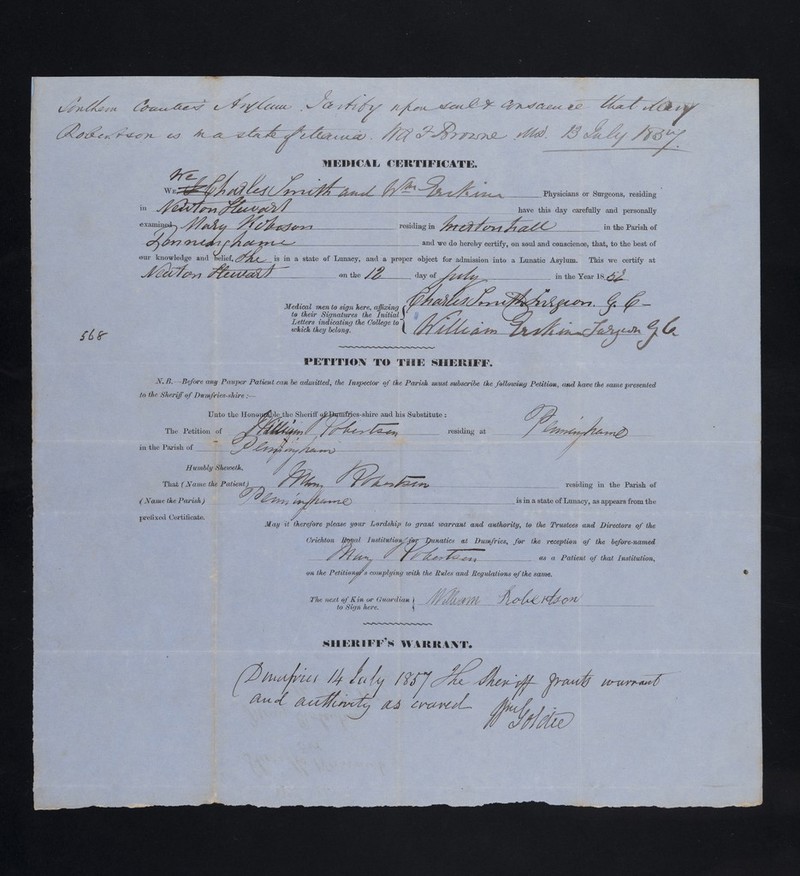 Southern Counties Asylum. I certify upon soul & conscience that Mary
Robertson is in a state of Mania. W A F Browne Md. 13 July 1857.
MEDICAL CERTIFICATE.
We
We, Charles Smith and Wm Erskine Physicians or Surgeons, residing
in Newton Stewart have this day carefully and personally
examined Mary Robeson residing in Mertonhall in the Parish of
Penninghame and we do hereby certify, on soul and conscience, that, to the best of
our knowledge and belief, She is in a state of Lunacy, and a proper object for admission into a Lunatic Asylum. This we certify at
Newton Stewart on the 12 day of July in the Year 18
Medical men to sign here, affixing
to their Signatures the Initial
Letters indicating the College to
which they belong.
Charles Smith Surgeon G. C
William Erskine Surgeon G C
568
PETITION TO THE SHERIFF.
N.B.—Before any Pauper Patient can be admitted, the Inspector of the Parish must subscribe the following Petition, and have the same presented
to the Sheriff of Dumfries-shire:—
Unto the Honourable the Sheriff of Dumfries-shire and his Substitute:
The Petition of William Robertson residing at Penninghame
in the Parish of Penninghame
Humbly Sheweth,
That (Name the Patient) Robertson residing in the Parish of
(Name the Parish) Penninghame is in a state of Lunacy, as appears from the
prefixed Certificate.
May it therefore please your Lordship to grant warrant and authority, to the Trustees and Directors of the
Crichton Royal Institution for Lunatics at Dumfries, for the reception of the before-named
Mary Robertson as a Patient of that Institution,
on the Petitioner's complying with the Rules and Regulations of the same.
The next of Kin or Guardian
to Sign here.
William Robertson
SHERIFF'S WARRANT.
Dumfries 14 July 1857 The Sheriff grants warrant
and authority as craved Wm Goldie